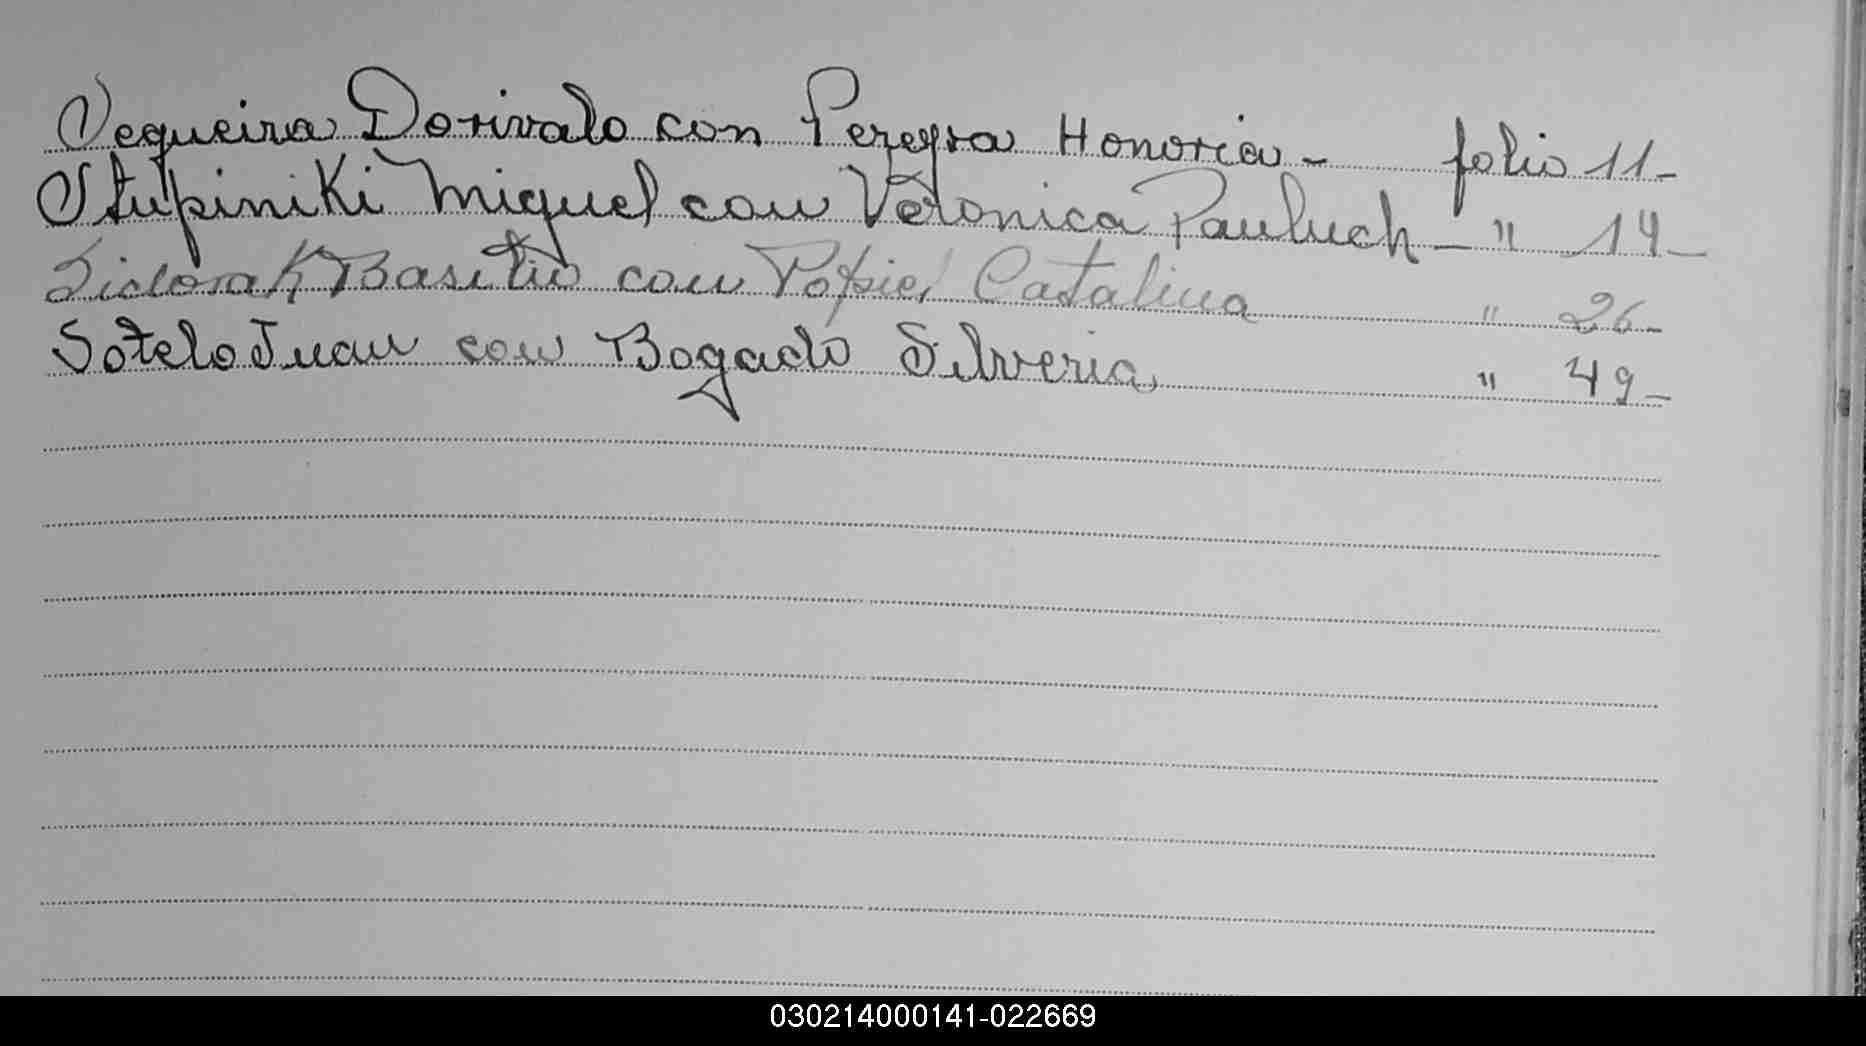 Sequeira Dorivalo con Pereyra Honoria - folio 11 -
Stupiniki Miguel con Veronica Pauluch - " 14 -
Sidorak Basilio con Popiel Catalina " 26 -
Sotelo Juan con Bogado Silveria " 49 -
030214000141-022669